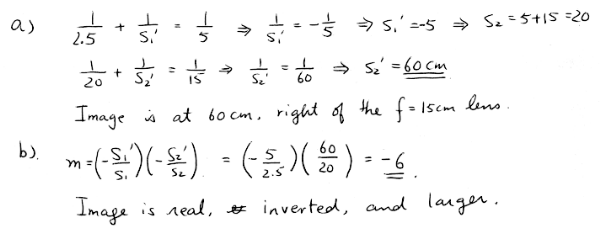 a) 1/2.5 + 1/S₁' = 1/5 ⇒ 1/S₁' = -1/5 ⇒ S₁' = -5 ⇒ S₂ = 5+15 = 20
1/20 + 1/S₂' = 1/15 ⇒ 1/S₂' = 1/60 ⇒ S₂' = 60 cm
Image is at 60 cm, right of the f = 15cm lens.
b). m = (-S₁'/S₁)(-S₂'/S₂) = (-5/2.5)(60/20) = -6.
Image is real, inverted, and larger.